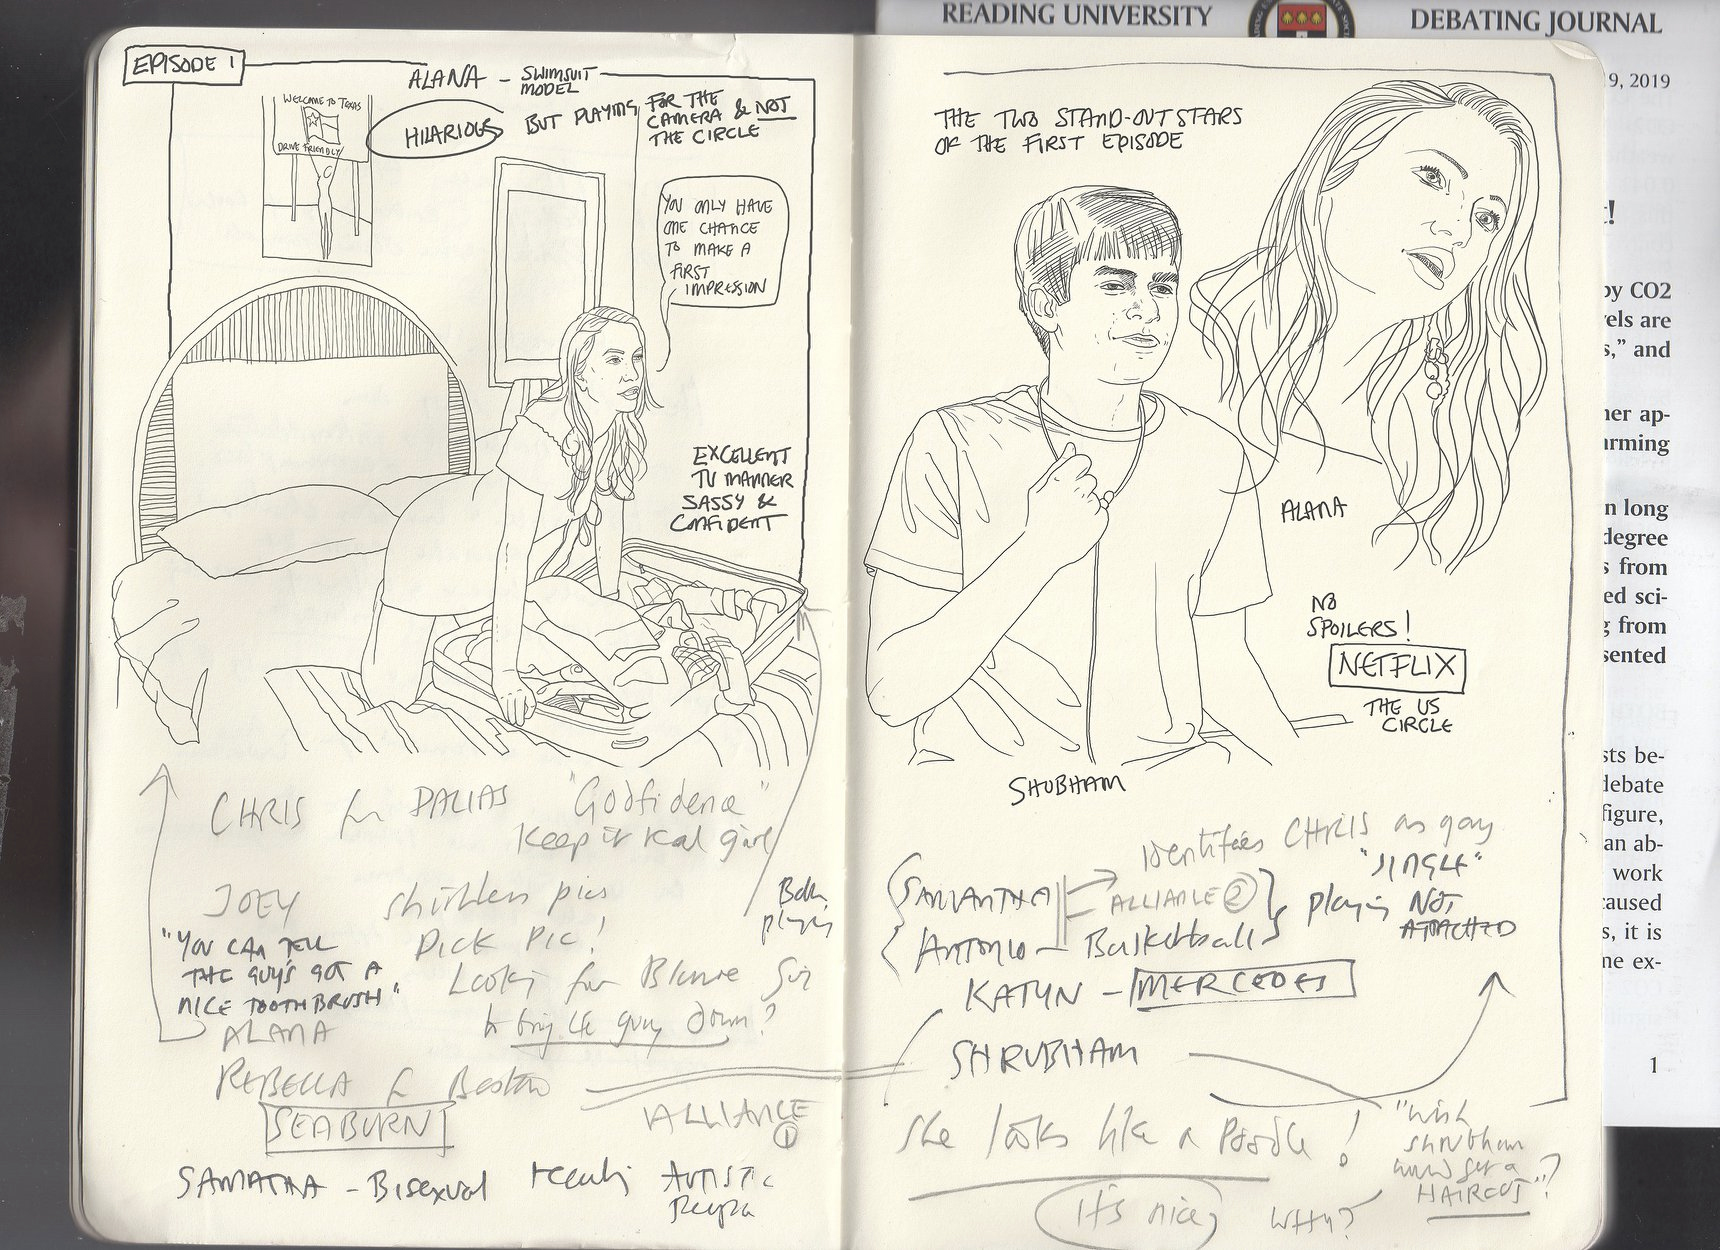 EPISODE 1
ALANA - SWIMSUIT
MODEL
HILARIOUS BUT PLAYING FOR THE
CAMERA & NOT
THE CIRCLE
WELCOME TO TEXAS
DRIVE FRIENDLY
YOU ONLY HAVE
ONE CHANCE
TO MAKE A
FIRST
IMPRESSION
EXCELLENT
TV MANNER
SASSY &
CONFIDENT
CHRIS
"Godfidence"
Keep it real girl
JOEY shirtless pics
DICK PIC!
"YOU CAN TELL
THE GUY'S GOT A
NICE TOOTHBRUSH"
ALANA
Looking for
guy down?
Both
playing
REBECCA
SEABURN
ALLIANCE
1
- Bisexual AUTISTIC
THE TWO STAND-OUT STARS
OF THE FIRST EPISODE
ALANA
NO
SPOILERS!
NETFLIX
THE US
CIRCLE
SHUBHAM
Identifies CHRIS as gay
SAMANTHA ALLIANCE 2 playing NOT
ANTONIO - Basketball ATTACHED
- MERCEDES
SHRUBHAM
She looks like a Poodle!
"Wish
Shrubham
would get a
HAIRCUT"?
it's nice
WHY?
READING UNIVERSITY DEBATING JOURNAL
9, 2019
by CO2
els are
s,” and
her ap-
arming
n long
degree
s from
ed sci-
g from
sented
sts be-
debate
figure,
an ab-
work
caused
s, it is
ne ex-
1